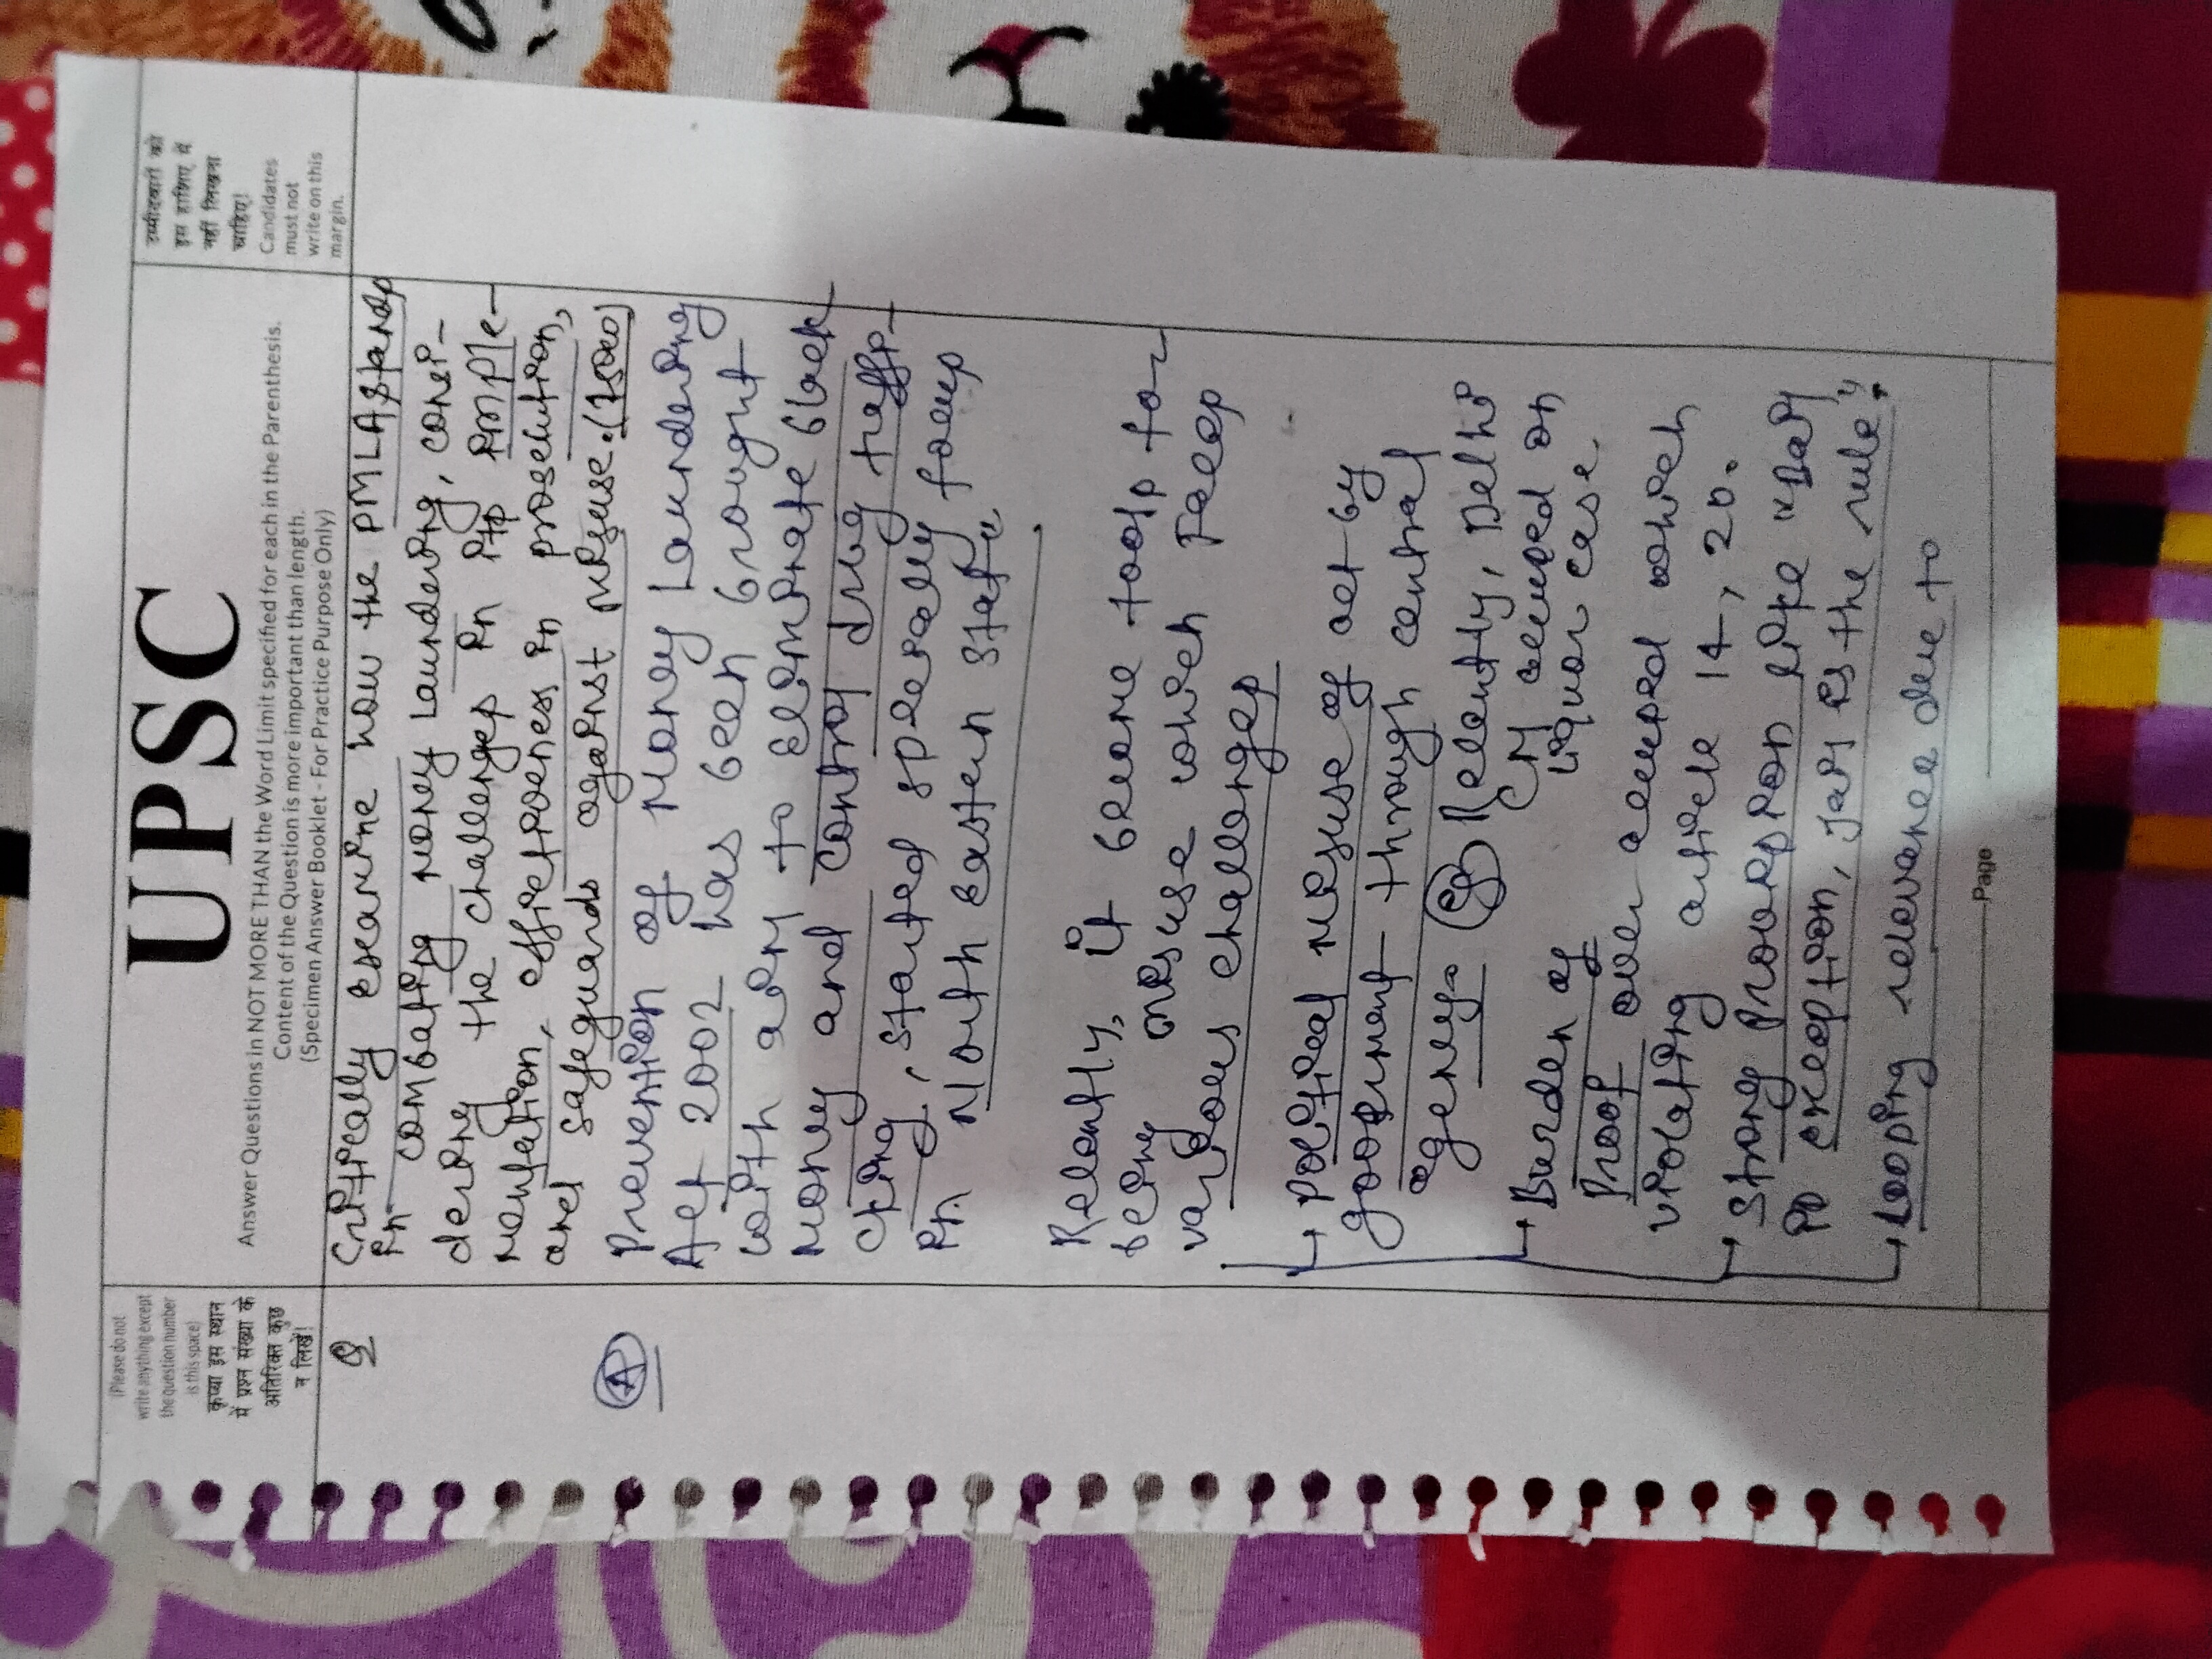 (Please do not
write anything except
the question number
is this space)
कृप्या इस स्थान
में प्रश्न संख्या के
अतिरिक्त कुछ
न लिखें!
UPSC
Answer Questions in NOT MORE THAN the Word Limit specified for each in the Parenthesis.
Content of the Question is more important than length.
(Specimen Answer Booklet - For Practice Purpose Only)
उम्मीदवारों को
इस हाशिए में
नहीं लिखना
चाहिए!
Candidates
must not
write on this
margin.
Q
Critically examine how the PMLA stands
in combating money laundering, consi-
dering the challenges in its imple-
mentation, effectiveness in prosecution,
and safeguards against misuse. (150w)
A
Prevention of Money Laundering
Act 2002 has been brought
with aim to eliminate black
money and control drug traffi-
cking, started specially focus
in North Eastern State"
Recently, it became tools for
being misuse which faces
various challenges
→ Political misuse of act by
government through central
agency- eg Recently, Delhi
CM accused on
liquor case.
→ Burden of
Proof over accused which
violating article 14, 20.
→ Strong Provision like "Bail
is exception, jail is the rule".
→ Loosing relevance due to
Page